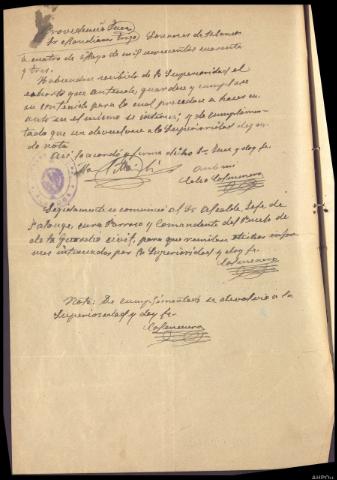 Providencia Juez
Sr. Mandiano Trigo
a cuatro de Mayo de mil novecientos cuarenta
y tres.
Habiendose recibido de la Superioridad el
exhorto que antecede, guardese y cumplase
su contenido para lo cual procedase a hacer
en el mismo se interesa; y de cumplimen-
tado que sea devuelvase a la Superioridad
de nota
Asi lo acordó y firma dicho Sr. Juez y doy fe.
Seguidamente se comunicó al Sr. Alcalde, Jefe de
Falange, cura Parroco y Comandante del Puesto de
de la guardia civil, para que remitan dichos infor-
mes interesados por la Superioridad y doy fe.
Nota: De cumplimentado se devolvio a la
Superioridad y doy fe.